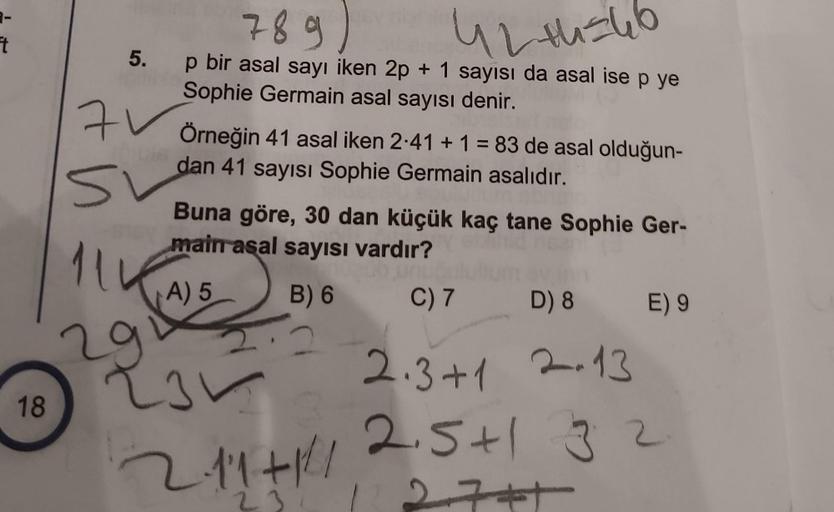 789)
42+4=46
5. p bir asal sayı iken 2p + 1 sayısı da asal ise p ye
Sophie Germain asal sayısı denir.
7✓
Örneğin 41 asal iken 2·41 + 1 = 83 de asal olduğun-
dan 41 sayısı Sophie Germain asalıdır.
5✓
Buna göre, 30 dan küçük kaç tane Sophie Ger-
main asal sayısı vardır?
11✓
A) 5 B) 6 C) 7 D) 8 E) 9
29✓ 2.2
23✓ 2.3+1 2.13
18
2.11+1 2.5+1 3 2
23 2.7+1